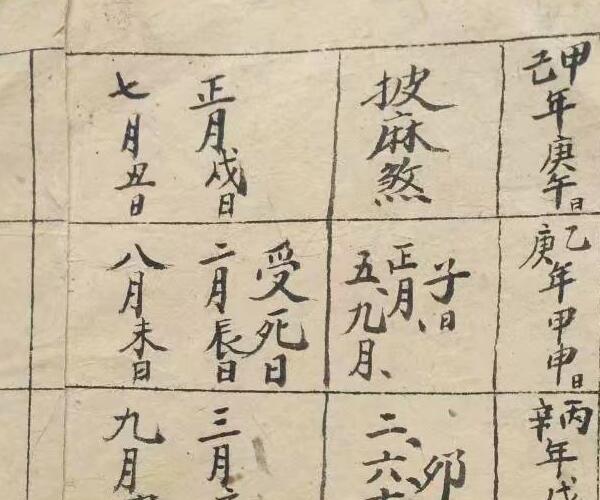 甲己年庚午日
乙庚年甲申日
丙辛年戊
披麻煞
子日
正月、
五、九月、
卯
二、六、
正月戌日
七月丑日
受死日
二月辰日
八月未日
三月
九月